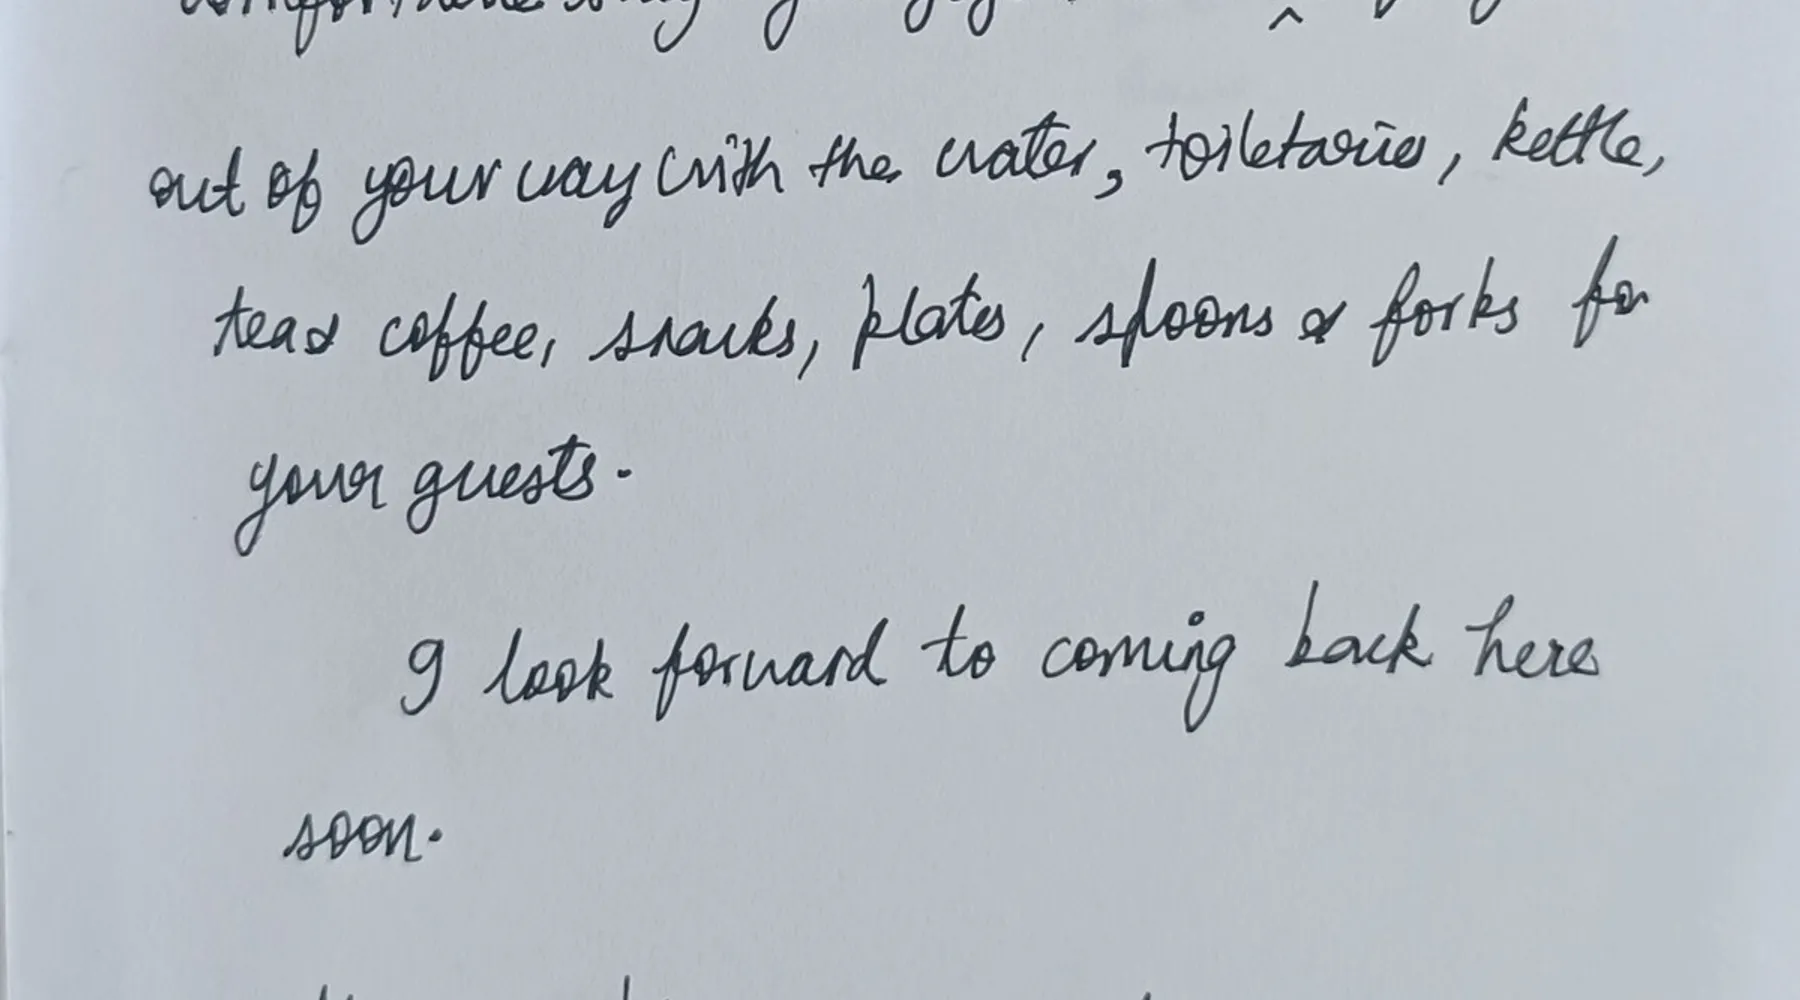 out of your way with the water, toiletaries, kettle,
tea & coffee, snacks, plates, spoons & forks for
your guests.
I look forward to coming back here
soon.